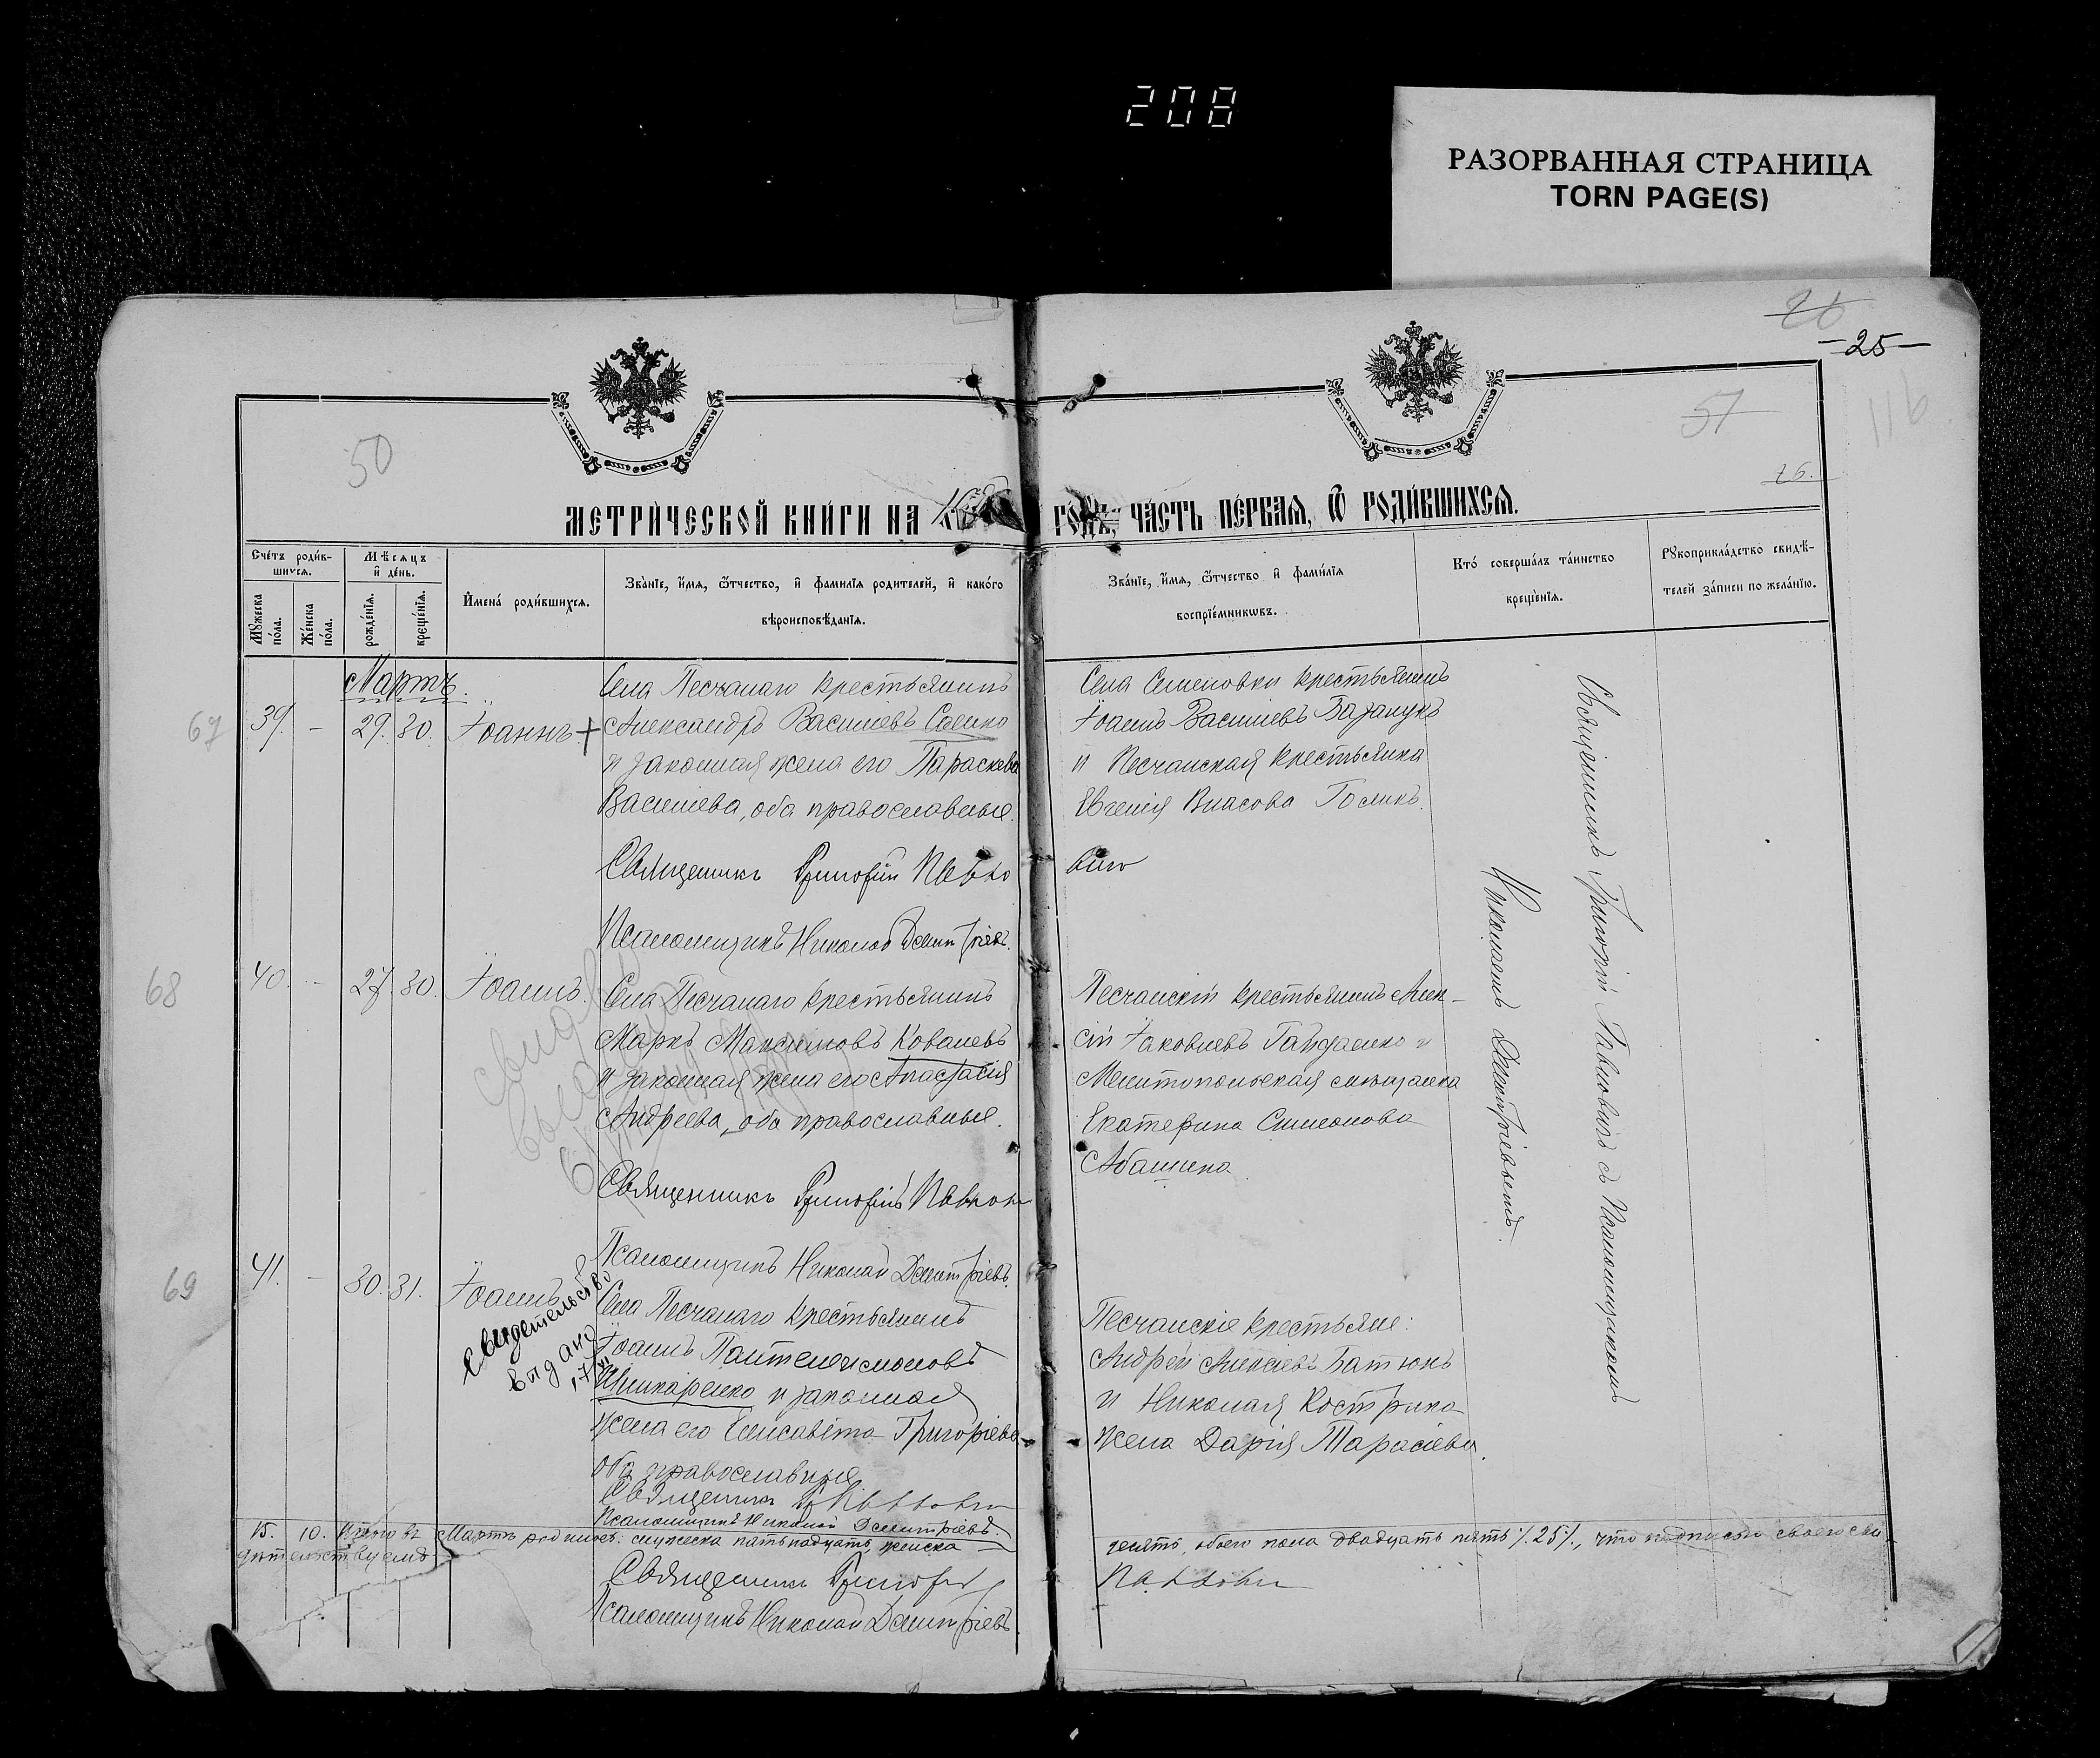 208
РАЗОРВАННАЯ СТРАНИЦА
TORN PAGE(S)
26
-25-
50
51
116
26.
МЕТРИ́ЧЕСКОЙ КНИ́ГИ НА
ГОДЪ, ЧА́СТЬ ПЕ́РВАЯ, Ѿ РОДИ́ВШИХСЯ.
Счетъ роди́в-
шихся.
Мѣсяцъ
и де́нь.
Мꙋжеска по́ла.
Же́нска по́ла.
рожде́нїя.
креще́нїя.
Имена́ роди́вшихся.
Зва́нїе, и́мя, ѻ́тчество, и фами́лїя родителей, и како́го
вѣроисповѣ́данїя.
Зва́нїе, и́мя, ѻ́тчество и фами́лїя
воспрїе́мникѡвъ.
Кто́ соверша́лъ та́инство
креще́нїя.
Рꙋкоприкла́дство свидѣ́-
телей за́писи по жела́нїю.
Мартъ.
67
39. - 29. 30. Іоаннъ +
Села Песчанаго крестьянинъ
Александръ Васильевъ Саенко
и законная жена его Параскева
Васильева, оба православные.
Священникъ Григорій Павло
Псаломщикъ Николай Дмитріевъ.
Села Семеновки крестьянинъ
Іоаннъ Васильевъ
и Песчанская крестьянка
Евгенія Власова Голикъ.
вичъ
68
40. - 27. 30. Іоаннъ.
Села Песчанаго крестьянинъ
Маркъ Максимовъ Ковалевъ
и законная жена его Анастасія
Андреева, оба православные.
Священникъ Григорій Павлов
Псаломщикъ Николай Дмитріевъ.
Песчанскій крестьянинъ Алек-
сій Іаковлевъ Гайдаенко и
Мелитопольская мѣщанка
Екатерина Симеонова
Абашина
69
41. - 30. 31. Іоаннъ
Свидетельство
выдано
17
Села Песчанаго крестьянинъ
Іоаннъ Пантелеимоновъ
Шинкаренко и законная
жена его Елисавета Григоріева
оба православные
Священникъ Гр Павлович
Псаломщикъ Николай Дмитріевъ.
Песчанскіе крестьяне:
Андрей Алексіевъ Батюкъ
и Николая Кострика
жена Дарія Тарасіева.
Священникъ Григорій Павловичъ съ Псаломщикомъ
Николаемъ Дмитріевымъ.
15. 10. Итого въ Мартѣ родилось: мужеска пятьнадцать, женска
десять, обоего пола двадцать пять /.25/., что подписью своею сви
дѣтельствуемъ:
Священникъ Григорій
Павлович
Псаломщикъ Николай Дмитріевъ.